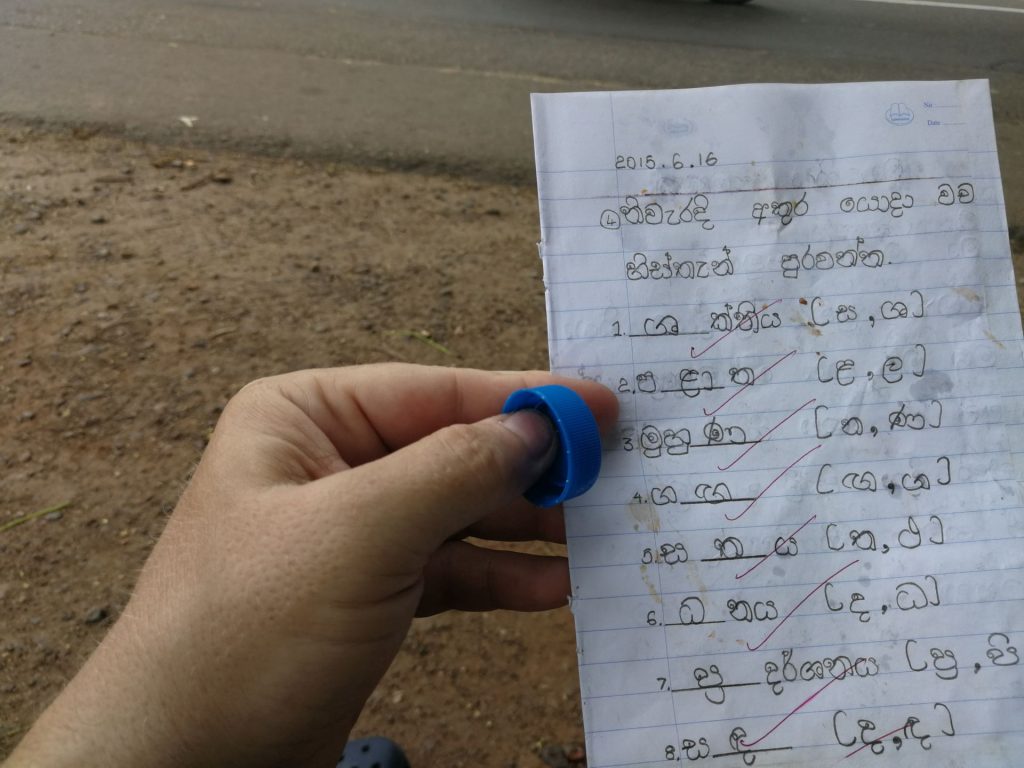 No
Date
2015.6.16
④නිවැරදි අකුර යොදා වචන
හිස්තැන් පුරවන්න.
1. ශ ක්තිය (ස, ශ)
2. ප ළා ත (ළ, ල)
3. මුහු ණ (න, ණ)
4. ග ඟ (ඟ, ග)
5. ස ත ය (ත, ථ)
6. ධ නය (ද, ධ)
7. ප්‍ර දර්ශනය (ප්‍ර, පි
8. ස ඳ (ද, ඳ)